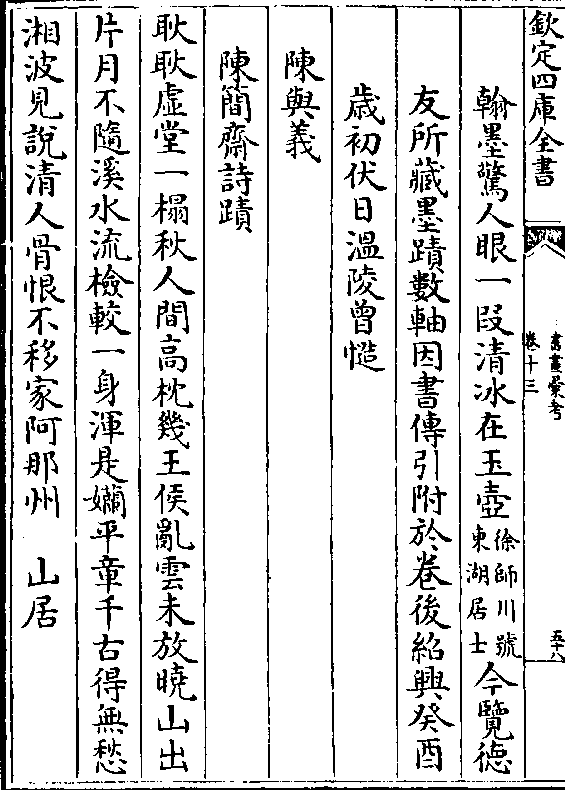 欽定四庫全書
書畫彙考
卷十三
五十八
翰墨驚人眼一段清冰在玉壺徐師川號東湖居士今覽德
友所藏墨蹟數軸因書傳引附於卷後紹興癸酉
歲初伏日溫陵曾慥
陳與義
陳簡齋詩蹟
耿耿虛堂一榻秋人間高枕幾王侯亂雲未放曉山出
片月不隨溪水流檢較一身渾是嬾平章千古得無愁
湘波見說清人骨恨不移家阿那州　山居